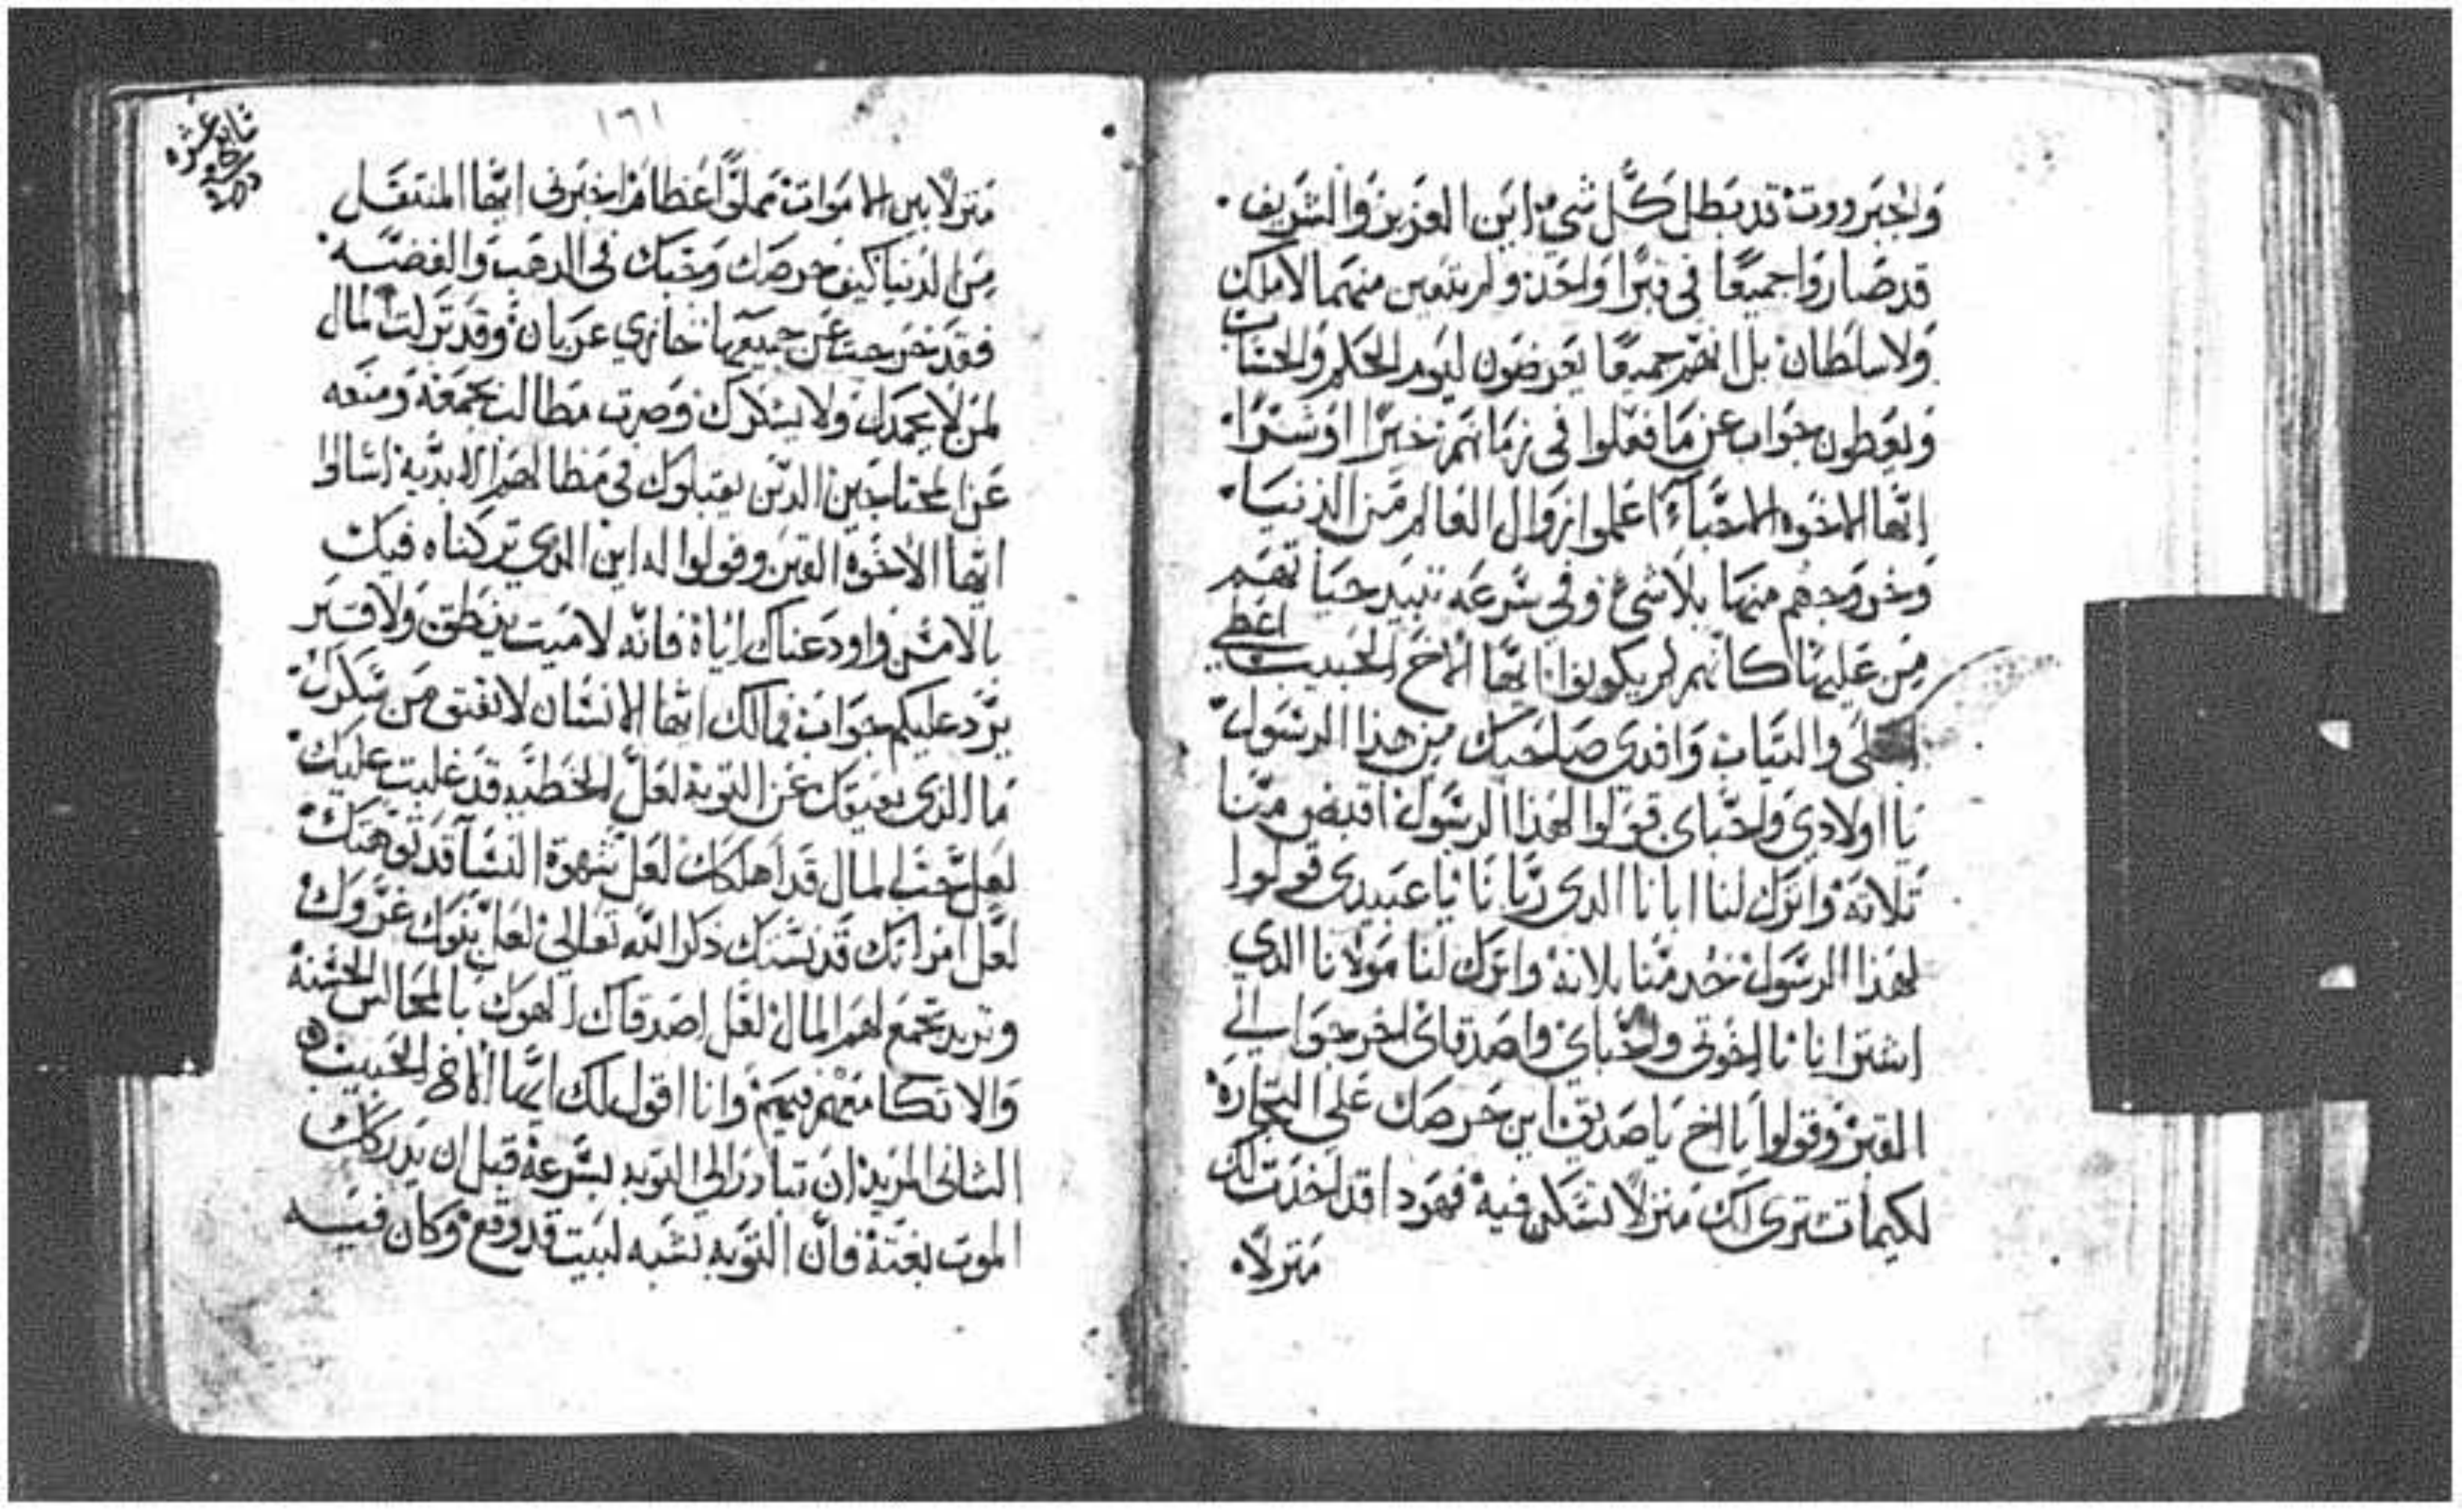 والجبروت قد بطل كل شي اين العزيز والشريف
قد صاروا جميعا في قبرا واحد ولم يتبين منهما لا ملك
ولا سلطان بل انهم جميعا يعرضون ليوم الحكم والحساب
ويعطون جواب عن ما فعلوا في زمانهم خيرا او شرا
ايها الاخوه الاحباء اعلموا زوال العالم من الدنيا
وخروجهم منها بلا شي وفي سرعه تبيد حياتهم
من علينا كانهم لم يكونوا ايها الاخ الحبيب اعطي
الحلى والتياب وافدى صاحبك من هذا الرسول
يا اولادي واحباى قولوا لهذا الرسول اقبض منا
تلاته واترك لنا ابانا الدى ربانا يا عبيدى قولوا
لهذا الرسول خد منا تلاته واترك لنا مولانا الدي
اشترانا يا اخوتى واحباي واصدقاى اخر جواب الي
القبر وقولوا يا اخ يا صديق اين حرصك على التجاره
لكيما تشترى لك منزلا تسكن فيه فهودا قد اخدت لك
منزلا
١٦١
منزلا بين الاموات مملوا عظاما اخبرنى ايها المنتقل
من الدنيا كيف حرصك ومحبتك فى الدهب والفضه
فقد خرجت عن جميعها خازي عريان وقد تركت المال
لمن لا يحمدك ولا يشكرك وصرت مطالب بجمعه ومنعه
عن المحتاجين الدين يقبلوك في مظالهم الابديه اسالوا
ايها الاخوه القبر وقولوا له اين الدي تركناه فيك
بالامس واودعناك اياه فانه لا ميت ينطق ولا قبر
يرد عليكم جواب فمالك ايها الانسان لا تفتق من سكرك
ما الدى يعيقك عن التوبه لعل الخطيه قد غلبت عليك
لعل حب المال قد اهلكك لعل شهوة النسا قد توهتك
لعل امراتك قد نستك ذكر الله تعالى لعل بنوك غروك
وتريد تجمع لهم المال لعل اصدقاك الهوك بالمجالس الحسنه
والاتكا معهم فيهم وانا اقول لك ايها الاخ الحبيب
التانى المريد ان تبادر الي التوبه بسرعه قبل ان يدركك
الموت بغتة فان التوبه تشبه لبيت قد وقع وكان فيه